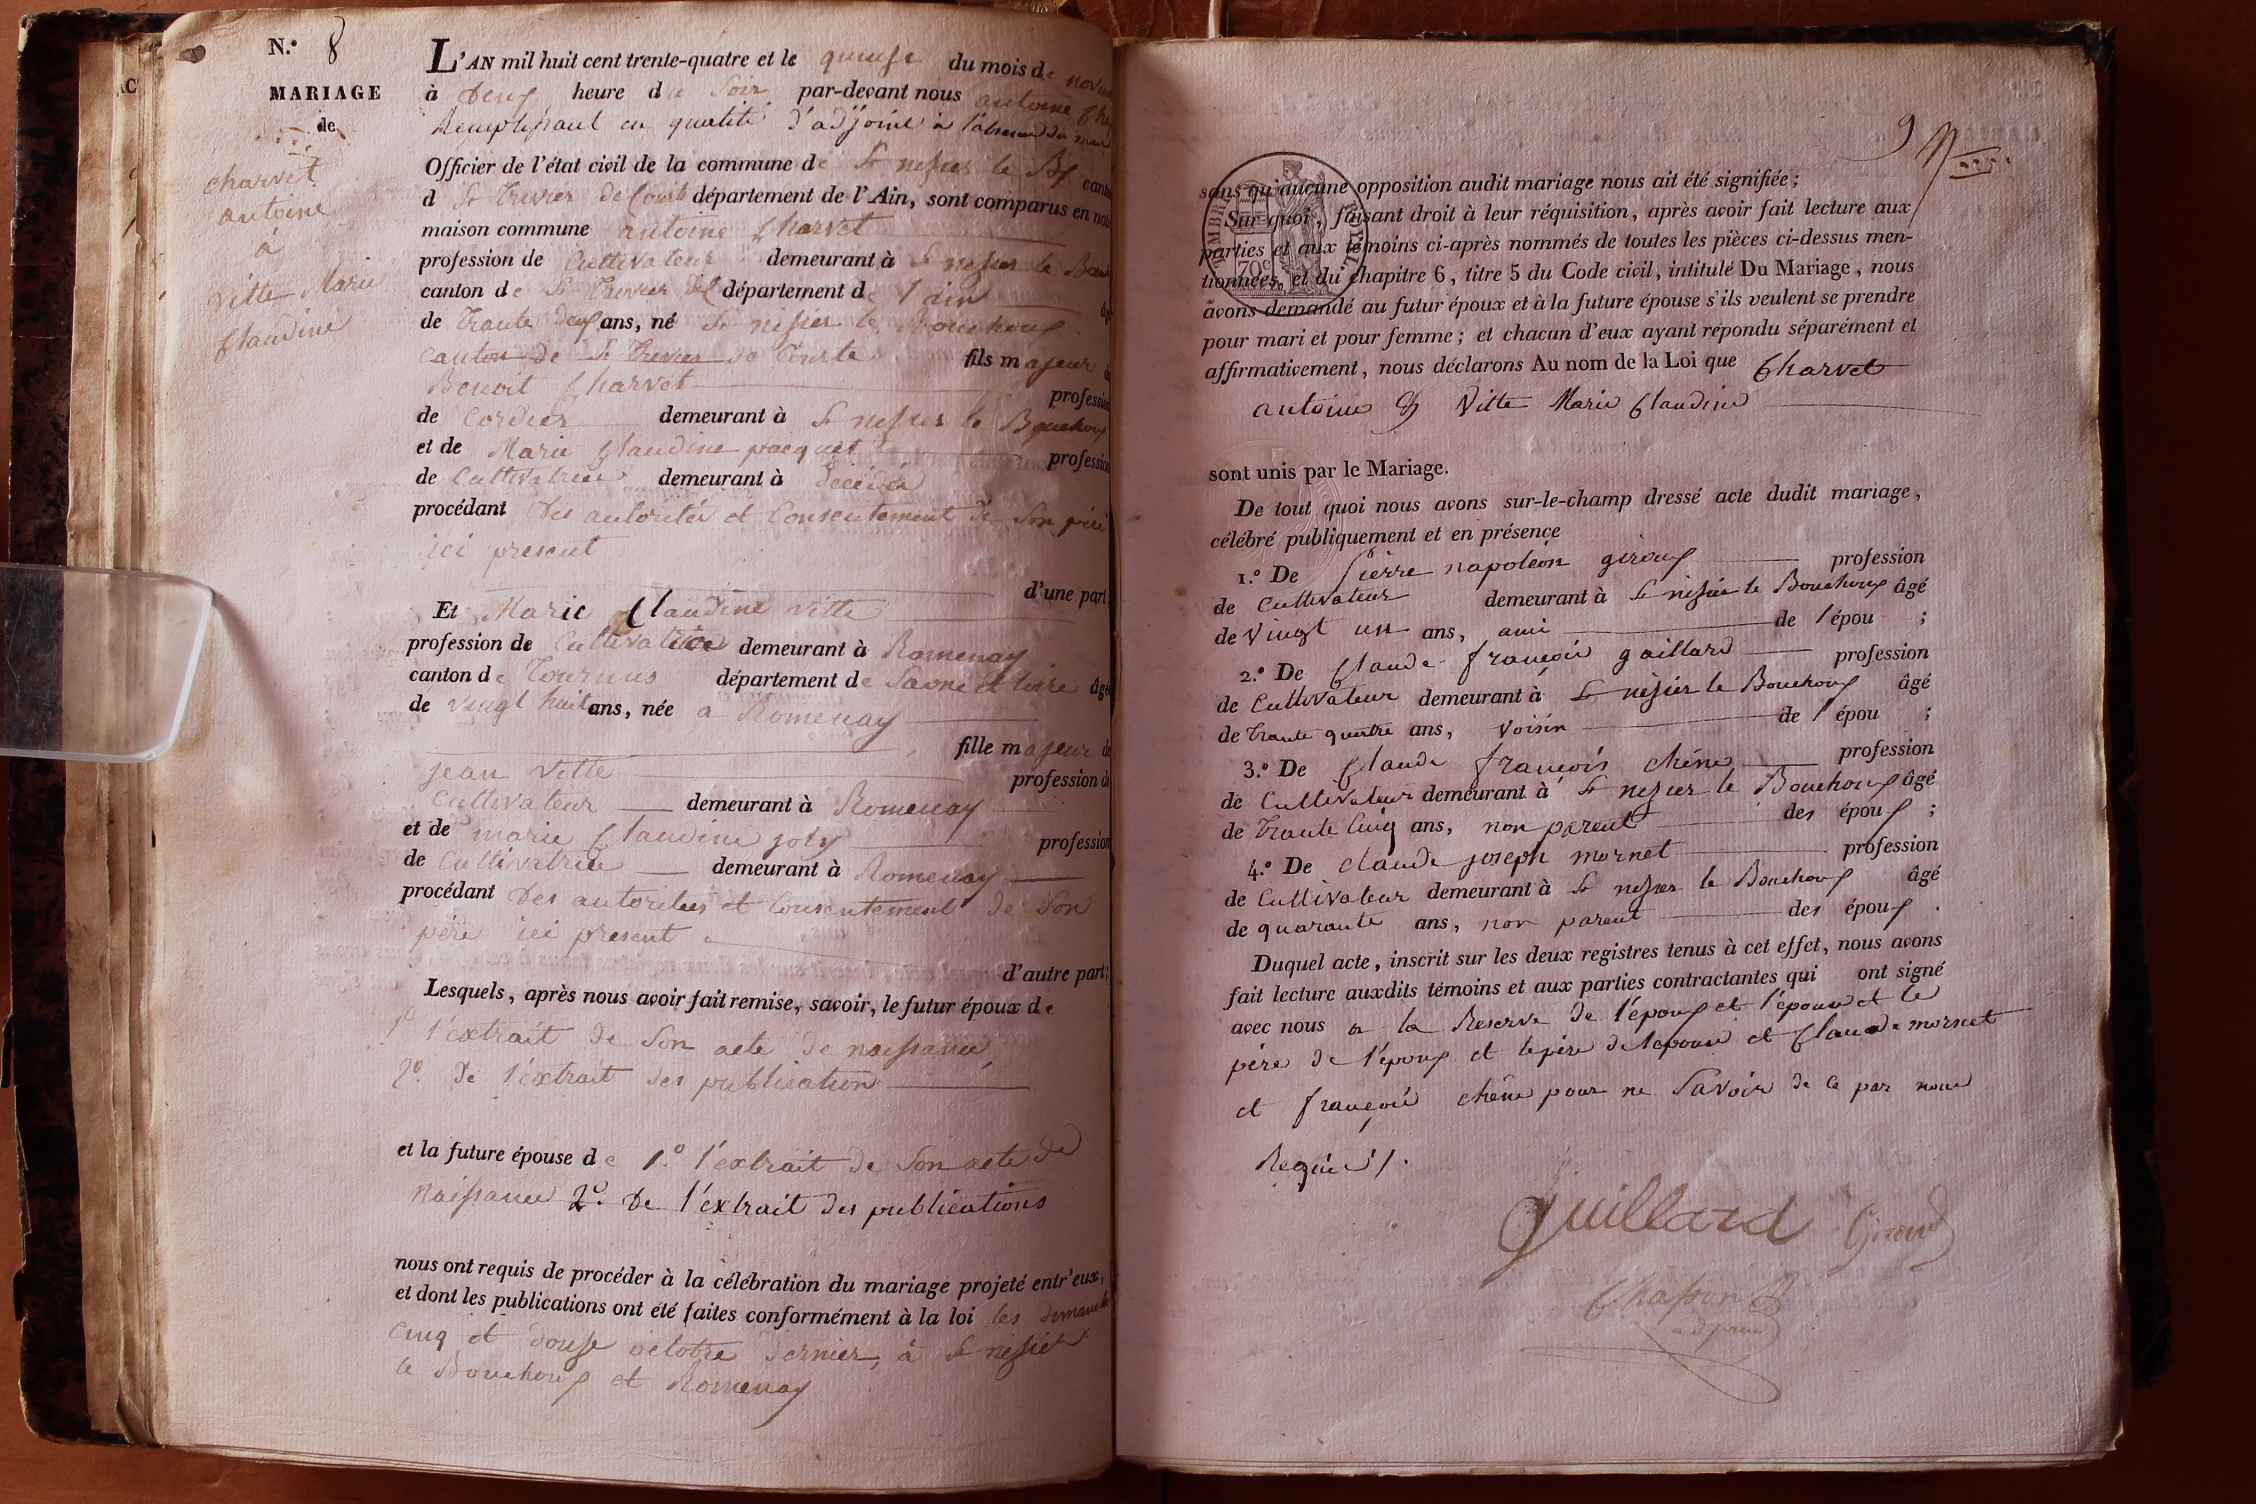 N.º 8
MARIAGE
de
charvet
antoine
à
vitte Marie
Claudine
L'AN mil huit cent trente-quatre et le quinse du mois de
à Deux heure du Soir par-devant nous antoine
Remplissant en qualité d'adjoint à l'absence du maire
Officier de l'état civil de la commune de St nisier le Bx
d St Trivier de Courte département de l'Ain, sont comparus en
maison commune antoine Charvet
profession de Cultivateur demeurant à St nisier le
canton de St Trivier département de l'ain
de trante deux ans, né St nisier le Bouchoux
canton de St Trivier de Courte fils majeur
Benoit Charvet profession
de Cordier demeurant à St nisier le Bouchoux
et de Marie Claudine pacquet profession
de Cultivatrice demeurant à Décédé
procédant Des autorités et Consentement de Son père
ici présent
d'une part
Et Marie Claudine vitte
profession de Cultivatrice demeurant à Romenay
canton de Tournus département de Saone et loire âgé
de vingt huit ans, née a Romenay
fille majeur de
jean vitte profession de
Cultivateur demeurant à Romenay
et de marie Claudine joly profession
de Cultivatrice demeurant à Romenay
procédant Des autorités et Consentement de Son
père ici présent
d'autre part;
Lesquels, après nous avoir fait remise, savoir, le futur époux de
1º l'extrait de Son acte de naissance,
2º. De l'extrait des publication
et la future épouse de 1.º l'extrait de Son acte de
naissance 2º. De l'extrait des publications
nous ont requis de procéder à la célébration du mariage projeté entr'eux,
et dont les publications ont été faites conformément à la loi les dimanche
Cinq et Douse octobre Dernier, à St nisier
le Bouchoux et Romenay
sans qu'aucune opposition audit mariage nous ait été signifiée;
Sur quoi, faisant droit à leur réquisition, après avoir fait lecture aux
parties et aux témoins ci-après nommés de toutes les pièces ci-dessus men-
tionnées, et du chapitre 6, titre 5 du Code civil, intitulé Du Mariage, nous
avons demandé au futur époux et à la future épouse s'ils veulent se prendre
pour mari et pour femme; et chacun d'eux ayant répondu séparément et
affirmativement, nous déclarons Au nom de la Loi que Charvet
antoine & Vitte Marie Claudine
sont unis par le Mariage.
De tout quoi nous avons sur-le-champ dressé acte dudit mariage,
célébré publiquement et en présence
1.º De Pierre napoléon giroux profession
de Cultivateur demeurant à St nisier le Bouchoux âgé
de Vingt un ans, ami de l'épou ;
2.º De Claude françois gaillard profession
de Cultivateur demeurant à St nisier le Bouchoux âgé
de trante quatre ans, voisin de l'épou ;
3.º De Claude françois chêne profession
de Cultivateur demeurant à St nisier le Bouchoux âgé
de trante Cinq ans, non parent des époux ;
4.º De claude joseph mornet profession
de Cultivateur demeurant à St nisier le Bouchoux âgé
de quarante ans, non parent des époux .
Duquel acte, inscrit sur les deux registres tenus à cet effet, nous avons
fait lecture auxdits témoins et aux parties contractantes qui ont signé
avec nous a la Reserve de l'époux et l'épouse et le
père de l'époux et le père de l'épouse et Claude mornet
et françois chêne pour ne Savoir de ce par nous
Requis /.
guillard Giroud
adjoint